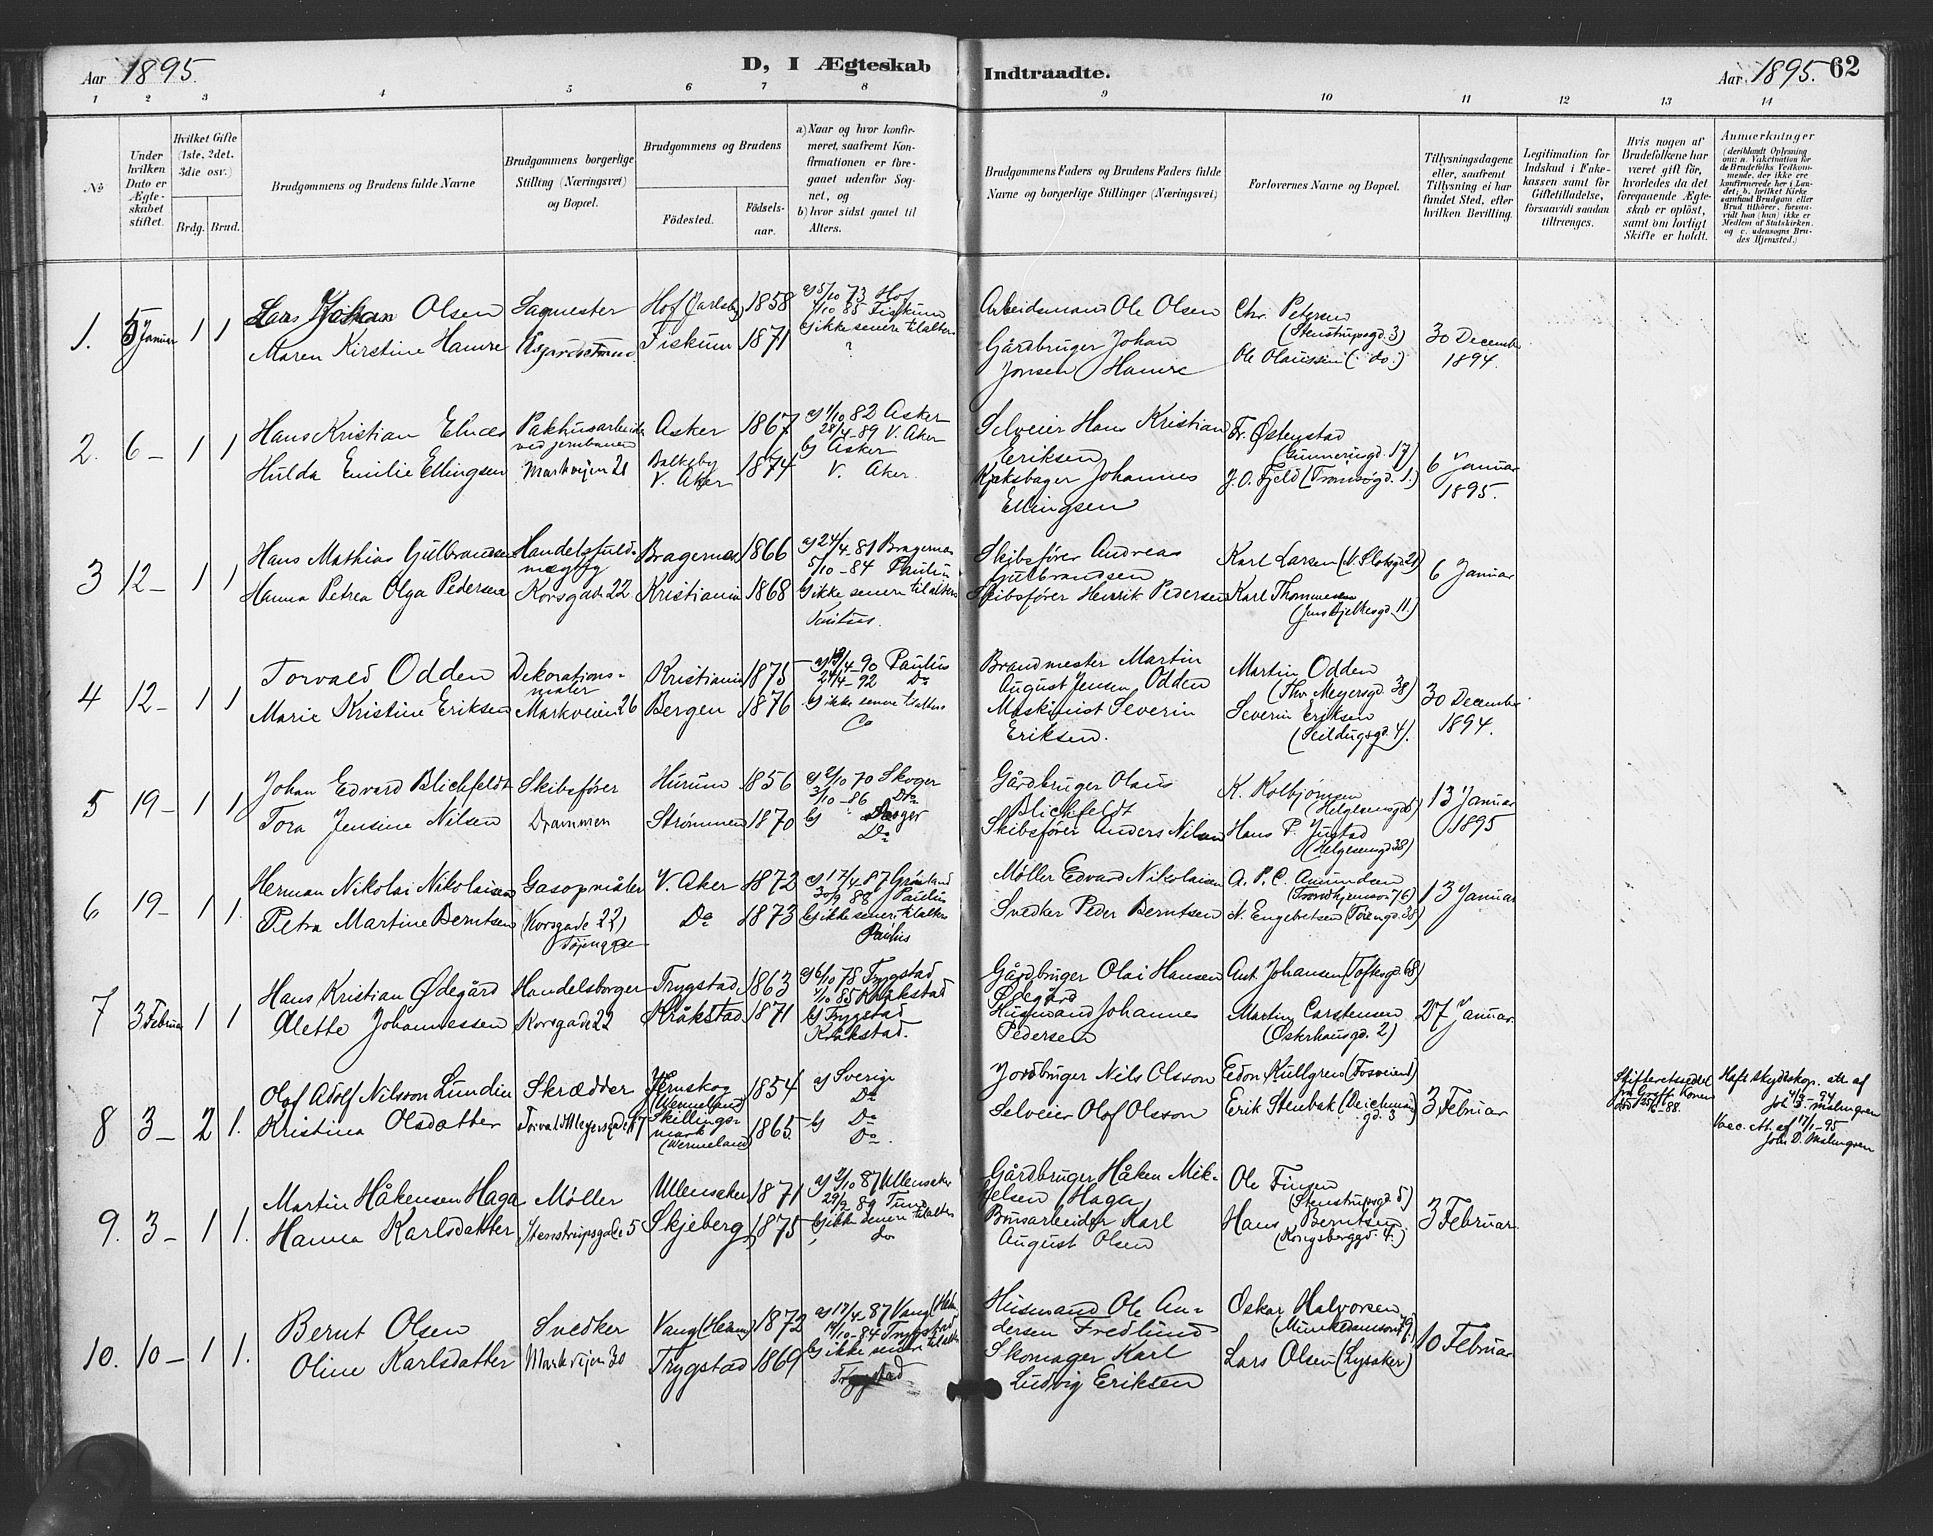 Aar 1895.
D, I Ægteskab Indtraadte.
Aar 1895. 62
1 2 3 4 5 6 7 8 9 10 11 12 13 14
№
Under hvilken Dato er Ægteskabet stiftet.
Hvilket Gifte (1ste, 2det, 3die osv.)
Brdg. Brud.
Brudgommens og Brudens fulde Navne
Brudgommens borgerlige Stilling (Næringsvei) og Bopæl.
Brudgommens og Brudens
Fødested.
Fødselsaar.
a) Naar og hvor konfirmeret, saafremt Konfirmationen er foregaaet udenfor Sognet, og
b) hvor sidst gaaet til Alters.
Brudgommens Faders og Brudens Faders fulde Navne og borgerlige Stillinger (Næringsvei)
Forlovernes Navne og Bopæl.
Tillysningsdagene eller, saafremt Tillysning ei har fundet Sted, efter hvilken Bevilling.
Legitimation for Indskud i Enkekassen samt for Giftetilladelse, forsaavidt saadan tiltrænges.
Hvis nogen af Brudefolkene har været gift før, hvorledes da det foregaaende Ægteskab er opløst, samt om lovligt Skifte er holdt.
Anmærkninger
1. 5 Januar 1 1
Lars Johan Olsen
Maren Kirstine Hamre
Sagmester
Hof (Jarlsby) 1858
Fiskum 1871
a) 5/10 73 Hof
4/10 85 Fiskum
b) ikke senere tilalters
?
Arbeidsmand Ole Olsen
Gårdbruger Johan
Jonsen Hamre
Chr. Petersen
(Stenstrupsgd. 3)
Ole Olaussen (do.)
30 December
1894.
2. 6 – 1 1
Hans Kristian
Hulda Emilie Ellingsen
Pakhusarbeider
ved jernbanen
Markveien 21
Asker 1867
Balkeby
V. Aker 1874
a) 1/10 82 Asker
28/4 – 89 V. Aker
b) Asker
V. Aker.
Selveier Hans Kristian
Eriksen
Johannes
Ellingsen
Fr. Østenstad
(Gunnerusgd. 17)
J. O. Fjeld (Tromsøgd. 1.)
6 Januar
1895.
3 12 – 1 1
Hans Mathias Gulbrandsen
Hanna Petrea Olga Pedersen
Handelsfuld-
mægtig
Korsgade 22
Bragernæs 1866
Kristiania 1868
a) 24/4 – 81 Bragernæs
5/10 – 84 Paulus
b) ikke senere tilalters
Paulus.
Skibsfører Andreas
Gulbrandsen
Skibsfører Henrik Pedersen
Karl Larsen (N. Slotsgd. 21)
Karl Thommesen
(Jens Bjelkesgd. 11.)
6 Januar
4 12 – 1 1
Torvald Odden
Marie Kristine Eriksen
Dekorations-
maler
Markveien 26
Kristiania 1875
Bergen 1876
a) 13/4 – 90 Paulus
24/4 – 92 Do
b) ikke senere tilalters
Do
Brandmester Martin
August Jensen Odden
Maskinist Severin
Eriksen.
Martin Odden
(Thv. Meyersgd. 38)
Severin Eriksen
(Seildugsgd. 4).
30 December
1894.
5 19 – 1 1
Johan Edvard Blichfeldt
Tora Jensine Nilsen
Skibsfører
Drammen
Hurum 1856
Strømmen 1870
a) 2/10 70 Skoger
3/10 – 86 Do
b)
Do
Gårdbruger Olaus
Blichfeldt
Skibsfører Anders Nilsen
K. Kolbjørnsen
(Helgesensgd. 5)
Hans P. Justad
(Helgesensgd. 38)
13 Januar
1895
6 19 – 1 1.
Herman Nikolai Nikolaisen
Petra Martine Berntsen
Gasopmåler
(Korsgade 22)
V. Aker 1872
Do 1873
a) 17/4 – 87 Grønland
30/9 88 Paulus
b) ikke senere tilalters
Paulus
Møller Edvard Nikolaisen
Snedker Peder Berntsen
A. P. C. Amundsen
(Trondhjemsvei 76)
N. Engebretsen (Tøiengd. 38)
13 Januar
7 3 Februar 1 1
Hans Kristian Ødegård
Alette Johannessen
Handelsborger
Korsgade 22
Trygstad 1863
Kråkstad 1871
a) 6/10 78 Trygstad
1/10 85 Kråkstad
b) Trygstad
Kråkstad.
Gårdbruger Olai Hansen
Ødegård
Husmand Johannes
Pedersen
Ant. Johansen (Toftesgd. 68)
Martin Carstensen
(Østerhausgd. 2)
27 Januar
8 3 – 2 1.
Olof Adolf Nilsson Lundin
Kristina Olsdatter
Skrædder
Torvald Meyersgade 47
Jernskog
(Wermeland) 1854
Skillings-
mark 1865
(Wermeland)
a) Sverige
Do
b) Do
Do.
Jordbruger Nils Olsson
Selveier Olof Olsson
Edon Kullgren (Fosveien 1)
Erik Stenbak (Deichmans
gd. 3
3 Februar
Skifteretsseddel
Haft skydskop. atr. af
Joh. D. Malmgren
Vacc. At. af 11/1 – 95
Joh. D. Malmgren
9. 3 – 1 1.
Martin Håkensen Haga
Hanna Karlsdatter
Møller
Stenstrupsgade 5
Ullensaker 1871
Skjeberg 1875
a) 2/10 87 Ullensaker
29/9 89 Tune
b) ikke senere tilalters
do
Gårdbruger Håken Mik-
kelsen Haga
Brusarbeider Karl
August Olsen
Ole Finsen
(Stenstrupsgd. 5)
Hans Berntsen
(Kongsberggd. 4.)
3 Februar
10. 10 – 1 1.
Bernt Olsen
Oline Karlsdatter
Snedker
Markveien 30
Vang (Hedm) 1872
Trygstad 1869
a) 17/4 – 87 Vang (Hedm.
19/10 – 84 Trygstad
b) ikke senere tilalters
Trygstad
Husmand Ole An-
dersen Fredlund
Skomager Karl
Ludvig Eriksen
Oskar Halvorsen
Lars Olsen (Lysaker)
10 Februar